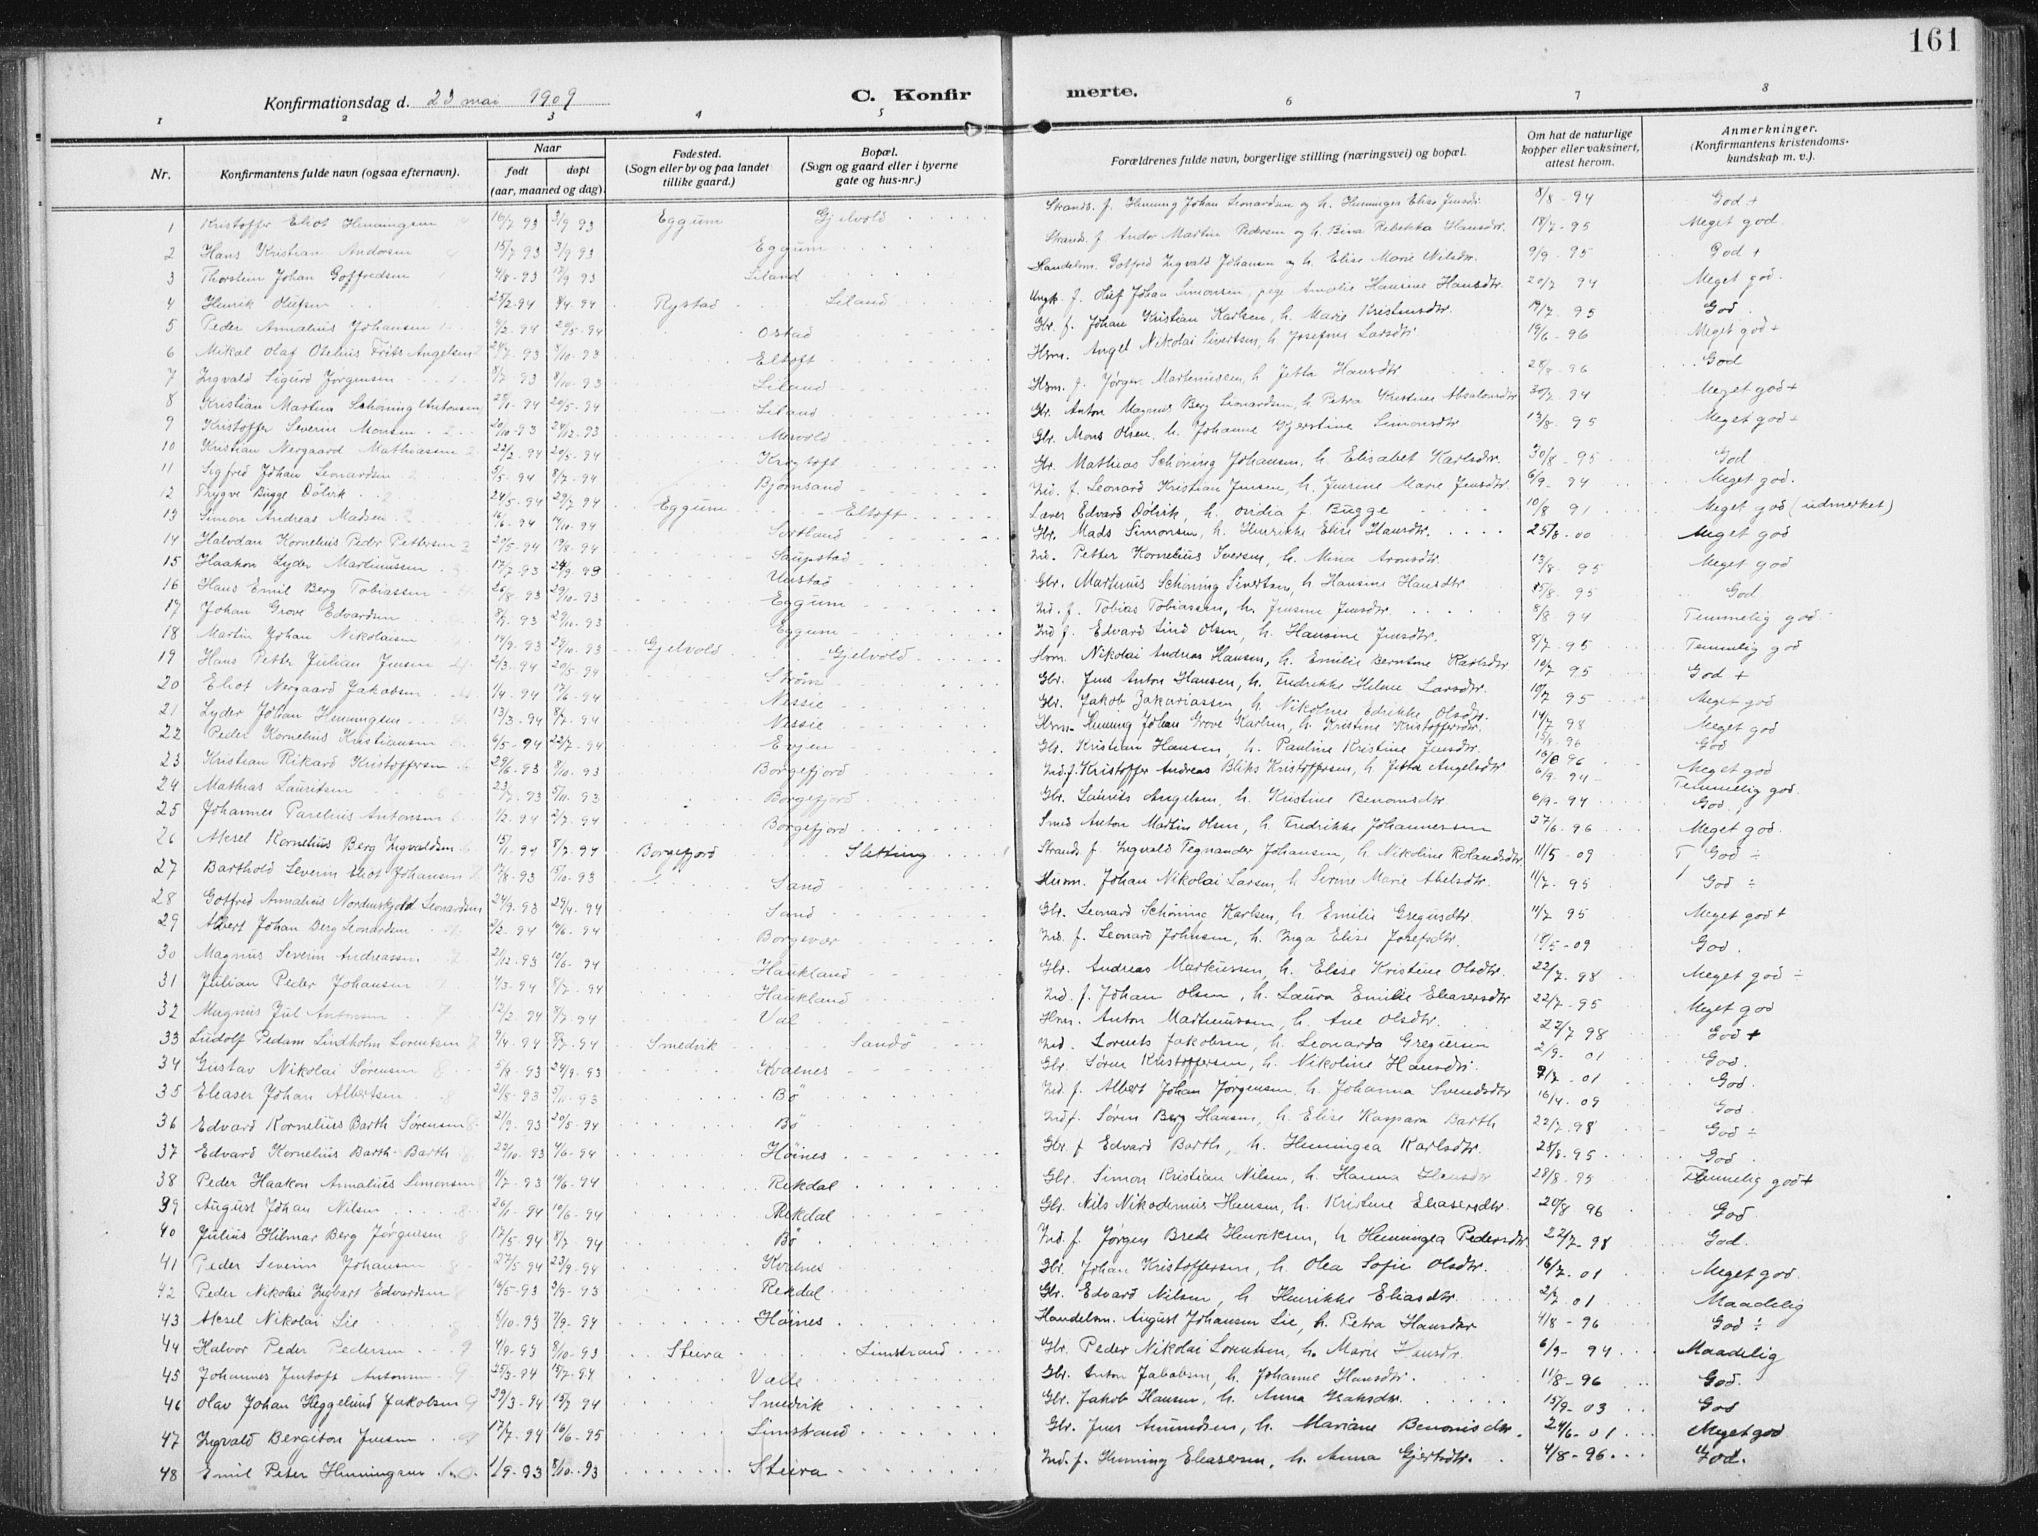 161
Konfirmationsdag d. 23 mai 1909
C. Konfirmerte.
1 2 3 4 5 6 7 8
Nr.
Konfirmantens fulde navn (ogsaa efternavn).
Naar
født
døpt
(aar, maaned og dag).
Fødested.
(Sogn eller by og paa landet
tillike gaard.)
Bopæl.
(Sogn og gaard eller i byerne
gate og hus-nr.)
Forældrenes fulde navn, borgerlige stilling (næringsvei) og bopæl.
Om hat de naturlige
kopper eller vaksinert,
attest herom.
Anmerkninger.
(Konfirmantens kristendoms-
kundskap m. v.).
1 Kristoffer Eliot Henningsen 16/7 93 3/9 93 Eggum Gjelvold Strands. f. Henning Johan Leonardsen og h. Henningea Elise Jensdtr 8/8 - 94 God +
2 Hans Kristian Andorsen 15/7 93 3/9 93 Eggum Strands. f. Andor Martin Pedersen og h. Bina Rebekka Hansdtr. 18/7 - 95 Meget god
3 Thorstein Johan Gotfredsen 4/8 - 93 17/9 93 Liland Handelsm. Gotfred Ingvald Johansen og h. Elise Marie Nilsdtr. 9/9 - 95 God +
4 Henrik Olufsen 25/2 - 94 8/4 - 94 Rystad Liland Ungk. f. Oluf Johan Simonsen, pige Amalie Hansine Hansdtr. 20/7 94 Meget god.
5 Peder Annanius Johansen 4/2 - 94 20/5 - 94 Ostad Gbr. f. Johan Kristian Karlsen, h. Marie Kristensdtr. 19/7 - 95 God.
6 Mikal Olaf Otelius Frits Angelsen 93 8/10 - 93 Eltoft Hsm. Angel Nikolai Sivertsen, h. Josefine Larsdtr 19/6 - 96 Meget god +
7 Ingvald Sigurd Jørgensen 8/7 93 8/10 - 93 Liland Hsm. f. Jørgen Martinussen, h. Jetta Hansdtr 28/8 - 96 God
8 Kristian Martin Schøning Antonsen 94 20/5 - 94 Liland Gbr. Anton Magnus Berg Leonardsen, h. Petra Kristine Absalonsdtr 30/7 94 Meget god +
9 Kristoffer Severin Monsen 20/10 - 93 24/12 - 93 Mervold Gbr. Mons Olsen, h. Johanne Gjerstine Simonsdtr 13/8 - 95 Meget god +
10 Kristian Nergaard Mathiassen 22/2 - 94 20/5 - 94 Krogtoft Gbr. Mathias Schøning Johansen, h. Elisabet Karlsdtr. 30/8 - 95 God
11 Sigfred Johan Leonardsen 5/5 - 94 8/7 - 94 Bjørnsand Ind. f. Leonard Kristian Jensen, h. Jensine Marie Jensdtr. 6/9 - 94 Meget god.
12 Trygve Bugge Dølvik 24/5 - 94 29/7 94 Eggum Eltoft Lærer Edvard Dølvik, h. Ovidia f. Bugge 10/8 91 Meget god (udmerket)
13 Simon Andreas Madsen 94 94 Sortland Gbr. Mads Simonsen, h. Henrikke Elise Hansdtr. 25/8 - 00 Meget god
14 Halvdan Kornelius Peder Pettersen 27/5 - 94 19/8 - 94 Saupstad Ind. Petter Kornelius Iversen, h. Mina Aronsdtr. 13/8 - 95 Meget god
15 Haakon Lyder Martinussen 17/7 - 93 24/9 93 Unstad Gbr. Martinus Schøning Sivertsen, h. Hansine Hansdtr 15/8 - 95 God
16 Hans Emil Berg Tobiassen 26/8 93 29/10 - 93 Eggum Ind. f. Tobias Tobiassen, h. Jensine Jensdtr. 8/8 - 94 Temmelig god
17 Johan Grove Edvardsen 93 29/10 - 93 Eggum Ind. f. Edvard Lind Olsen, h. Hansine Jensdtr. 8/7 - 95 Temmelig god
18 Martin Johan Nikolaisen 14/9 - 93 29/10 - 93 Gjelvold Gjelvold Hsm. Nikolai Andreas Hansen, h. Emilie Berntine Karlsdtr 10/7 95 God +
19 Hans Petter Julian Jensen 2/3 - 94 20/5 - 94 Strøm Gbr. Jens Anton Hansen, h. Fredrikke Helene Larsdtr. 10/7 95 Meget god
20 Eliot Nergaard Jakobsen 1/4 - 94 17/6 - 94 Nessie Gbr. Jakob Zakariassen, h. Nikoline Edrikke Olsdtr. 14/7 98 Meget god
21 Lyder Johan Henningsen 13/3 - 94 8/7 - 94 Nessie Hsm. Henning Johan Grove Karlsen, h. Kristine Kristoffersdtr. 15/8 - 96 God
22 Peder Kornelius Kristiansen 6/5 - 94 22/7 - 94 Evjen Gbr. Kristian Hansen, h. Pauline Kristine Jensdtr. 96 Meget god
23 Kristian Rikard Kristoffersen 29/6 - 93 8/10 - 93 Borgefjord Ind. f. Kristoffer Andreas Bliks Kristoffersen, h. Jetta Angelsdtr 6/9 - 94 Temmelig god.
24 Mathias Lauritsen 93 5/11 - 93 Borgefjord Gbr. Laurits Angelsen, h. Kristine Benonisdtr. 6/9 - 94 God
25 Johannes Parelius Antonsen 1/2 - 94 2/7 - 94 Borgefjord Smed Anton Martin Olsen, h. Fredrikke Johannessen 27/6 - 96 Meget god.
26 Aksel Kornelius Berg Ingvaldsen 15/1 - 94 8/7 - 94 Borgefjord Sletting Strands. f. Ingvald Tegnander Johansen, h. Nikoline Rolandsdtr 11/5 - 09 God ÷
27 Barthold Severin Eliot Johansen 17/8 - 93 15/10 - 93 Sand Husm. Johan Nikolai Larsen, h. Serine Marie Abelsdtr. 11/7 - 95 God ÷
28 Gotfred Annanius Nordenskjold Leonardsen 24/9 - 93 29/4 - 94 Sand Gbr. Leonard Schøning Karlsen, h. Emilie Gregusdtr. 11/7 95 Meget god +
29 Albert Johan Berg Leonardsen 2/2 - 94 10/6 - 94 Borgevær Ind. f. Leonard Johnsen, h. Inga Elise Josefsdtr. 18/5 - 09 God.
30 Magnus Severin Andreassen 21/12 - 93 10/6 - 94 Haukland Gbr. Andreas Markussen, h. Elise Kristine Olsdtr. 22/7 - 98 Meget god ÷
31 Julian Peder Johansen 4/3 - 94 8/7 - 94 Haukland Ind. f. Johan Olsen, h. Laura Emilie Eleasersdtr 22/7 - 95 Meget god
32 Magnus Jul Antonsen 12/2 94 8/7 - 94 Val Hsm. Anton Martinussen, h. Ane Olsdtr. 22/7 98 God +
33 Ludolf Pedam Lindholm Lorentsen 9/4 - 94 94 Smedvik Sandö Ind. Lorents Jakobsen, h. Leonarda Gregersen 2/9 - 01 God.
34 Gustav Nikolai Sørensen 5/8 - 93 24/9 - 93 Kvalnes Gbr. Søren Kristoffersen, h. Nikoline Hansdtr. 9/7 - 01 God.
35 Eleaser Johan Albertsen 21/8 - 93 5/11 - 93 Bö Ind. f. Albert Johan Jørgensen, h. Johanna Svendsdtr 16/4 - 09 God.
36 Edvard Kornelius Barth Sørensen 21/9 - 93 20/5 - 94 Bö Ind. f. Søren Berg Hansen, h. Elise Kaspara Barth 22/7 - 98 God ÷
37 Edvard Kornelius Barth Barth 22/10 - 93 4/6 - 94 Höines Gbr. f Edvard Barth, h. Henningea Karlsdtr. 28/8 - 95 God
38 Peder Haakon Annanius Simonsen 11/7 - 93 10/6 - 94 Rekdal Gbr. Simon Kristian Nilsen, h. Hanna Hansdtr 28/8 - 95 Temmelig god +
39 August Johan Nilsen 26/1 - 94 10/6 - 94 Rekdal Gbr. Nils Nikodemus Hansen, h. Kristine Eleasersdtr 20/8 96 God
40 Julius Hilmar Berg Jørgensen 17/5 - 94 8/7 - 94 Bö Ind. f. Jørgen Brede Henriksen, h. Henningea Pedersdtr. 22/7 - 98 God.
41 Peder Severin Johansen 27/5 94 23/9 - 94 Kvalnes Gbr. Johan Kristoffersen, h. Olea Sofie Olsdtr. 16/7 - 01 Meget god.
42 Peder Nikolai Ingbart Edvardsen 16/5 - 93 3/9 - 93 Rekdal Gbr. Edvard Nilsen, h. Henrikke Eliasdtr 2/7 01 Maadelig
43 Aksel Nikolai Lie 6/10 - 93 7/9 - 94 Höines Handelsm. August Johansen Lie, h. Petra Hansdtr 4/8 - 96 God ÷
44 Halvor Peder Pedersen 4/9 - 93 8/10 - 93 Steira Limstrand Gbr. Peder Nikolai Lorentsen, h. Marie Hansdtr. 6/9 - 94 Maadelig
45 Johannes Jentoft Antonsen 25/3 - 94 15/7 - 94 Valle Gbr. Anton Jakobsen, h. Johanne Hansdtr. 11/8 - 96 God.
46 Olav Johan Heggelund Jakobsen 23/3 - 94 94 Smedvik Gbr. Jakob Hansen, h. Anna Isaksdtr. 15/9 - 03 God
47 Ingvald Bergiton Jensen 17/7 - 94 16/6 - 95 Limstrand Gbr. Jens Amundsen, h. Mariane Benonisdtr. 24/6 - 01 Meget god
48 Emil Peter Henningsen 1/9 - 93 8/10 - 93 Steira Ind. f. Henning Eleasersen, h. Anna Gjertsdtr. 4/8 - 96 God.